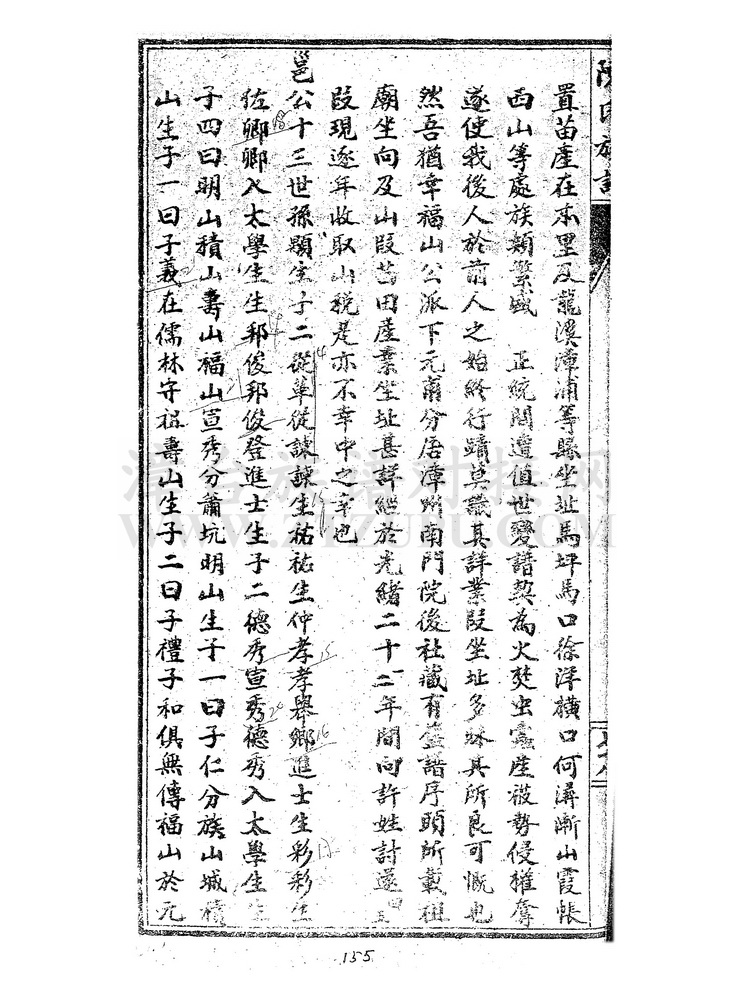 置苗產在本里及龍溪漳浦等縣坐址馬坪馬口徐洋橫口何潯漸山霞帳
西山等處族類繁盛 正統間遭值世變譜契為火焚虫蠹產被勢侵權奪
遂使我後人於前人之始終行蹟莫識其詳業段坐址多昧其所良可慨也
然吾猶幸福山公派下元甫分居漳州南門院後社藏有舊譜序頭所載祖
廟坐向及山段苗田產業坐址甚詳經於光緒二十二年間向許姓討還四五
段現逐年收取山稅是亦不幸中之幸也
邕公十三世孫顯生子二從華從諫諫生祐祐生仲孝孝舉鄉進士生彩彩生
佐卿卿入太學生生邦俊邦俊登進士生子二德秀宣秀德秀入太學生生
子四曰明山積山壽山福山宣秀分蕭坑明山生子一曰子仁分族山城積
山生子一曰子義在儒林守祖壽山生子二曰子禮子和俱無傳福山於元
族譜
155
海台族谱对接网
www.ztzupu.com